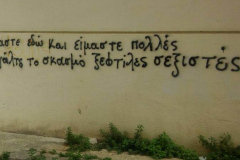 αστε εδώ και είμαστε πολλές
το σκασμό ξεφτίλες σεξιστές